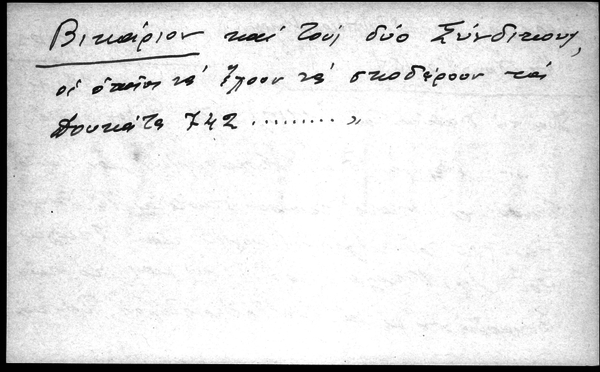 Βικάριον καί τούς δύο Σύνδικους,
οἱ ὁποῖοι νά ἔχουν νά σκοδέρουν καί
Δουκάτα 742 .......... »